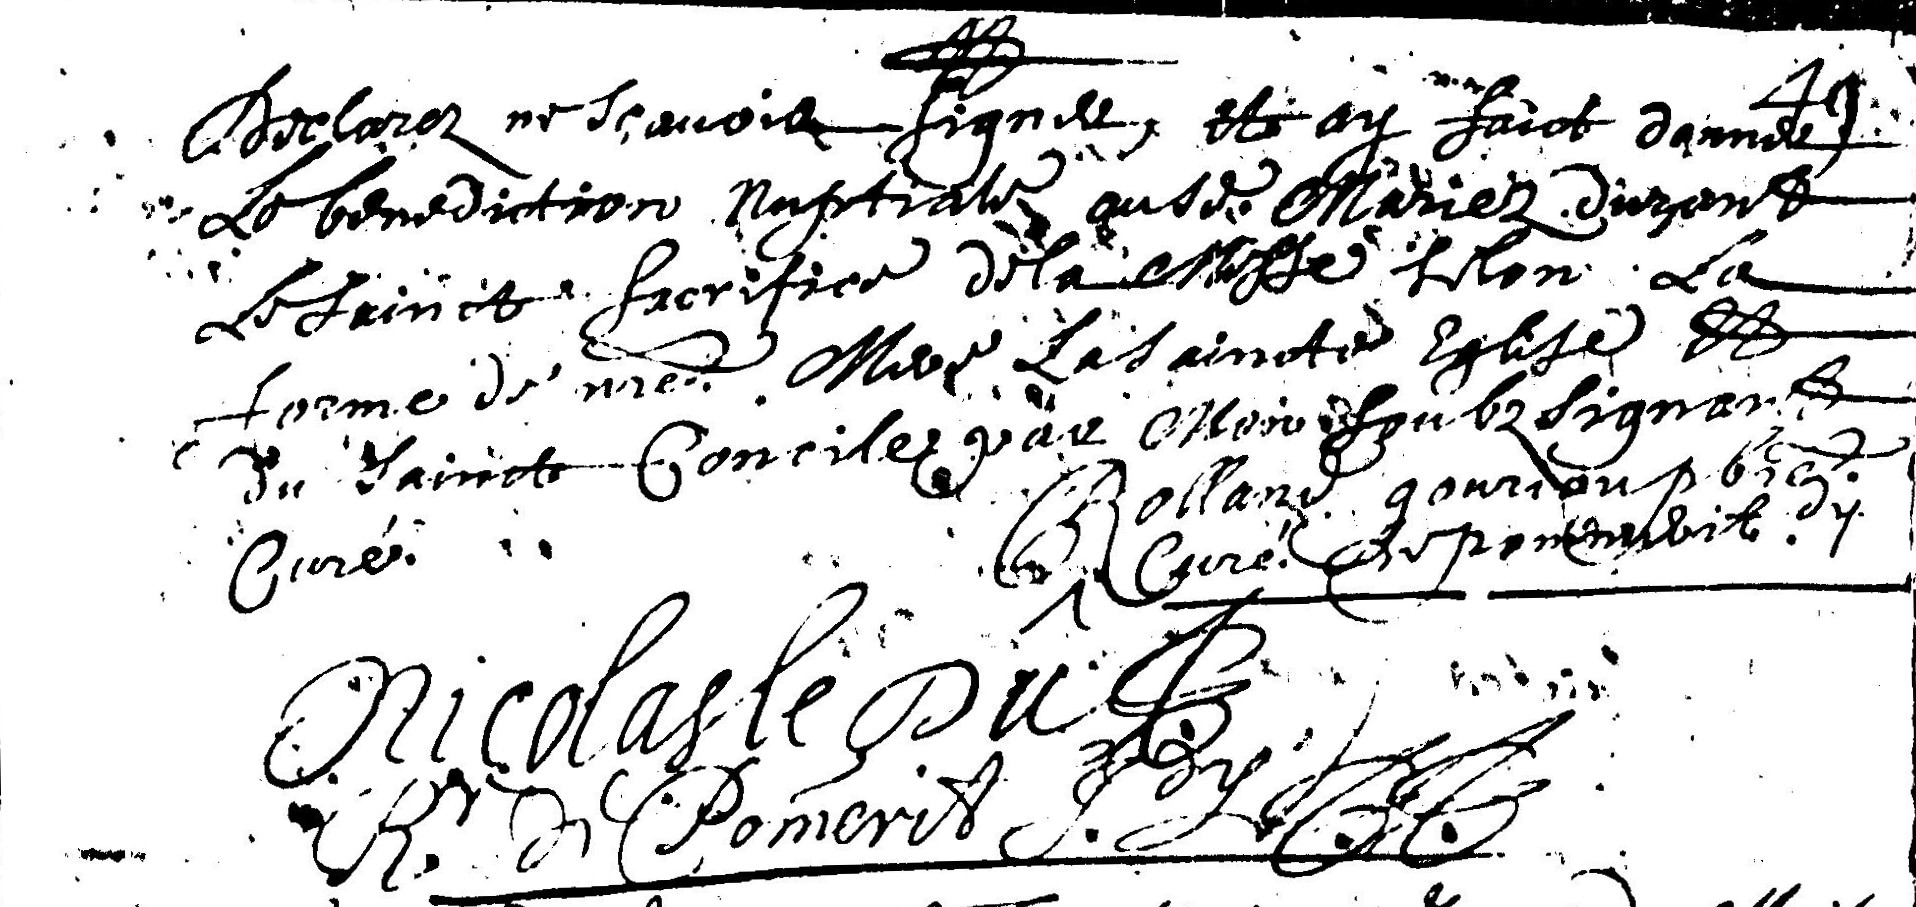 49
Declarez ne sçavoir signer, et ay faict donner
Le benediction Nuptiale ausd. Mariez durant
Le sainct sacrifice de la Messe selon La
forme de nre. Mere La saincte Eglise et
du sainct Concile par Moy soubz signant
Curé. Rolland gouriou pbre.
Curé de pommerit. dy
Nicolas le Du
Rr de Pomerit J. dy